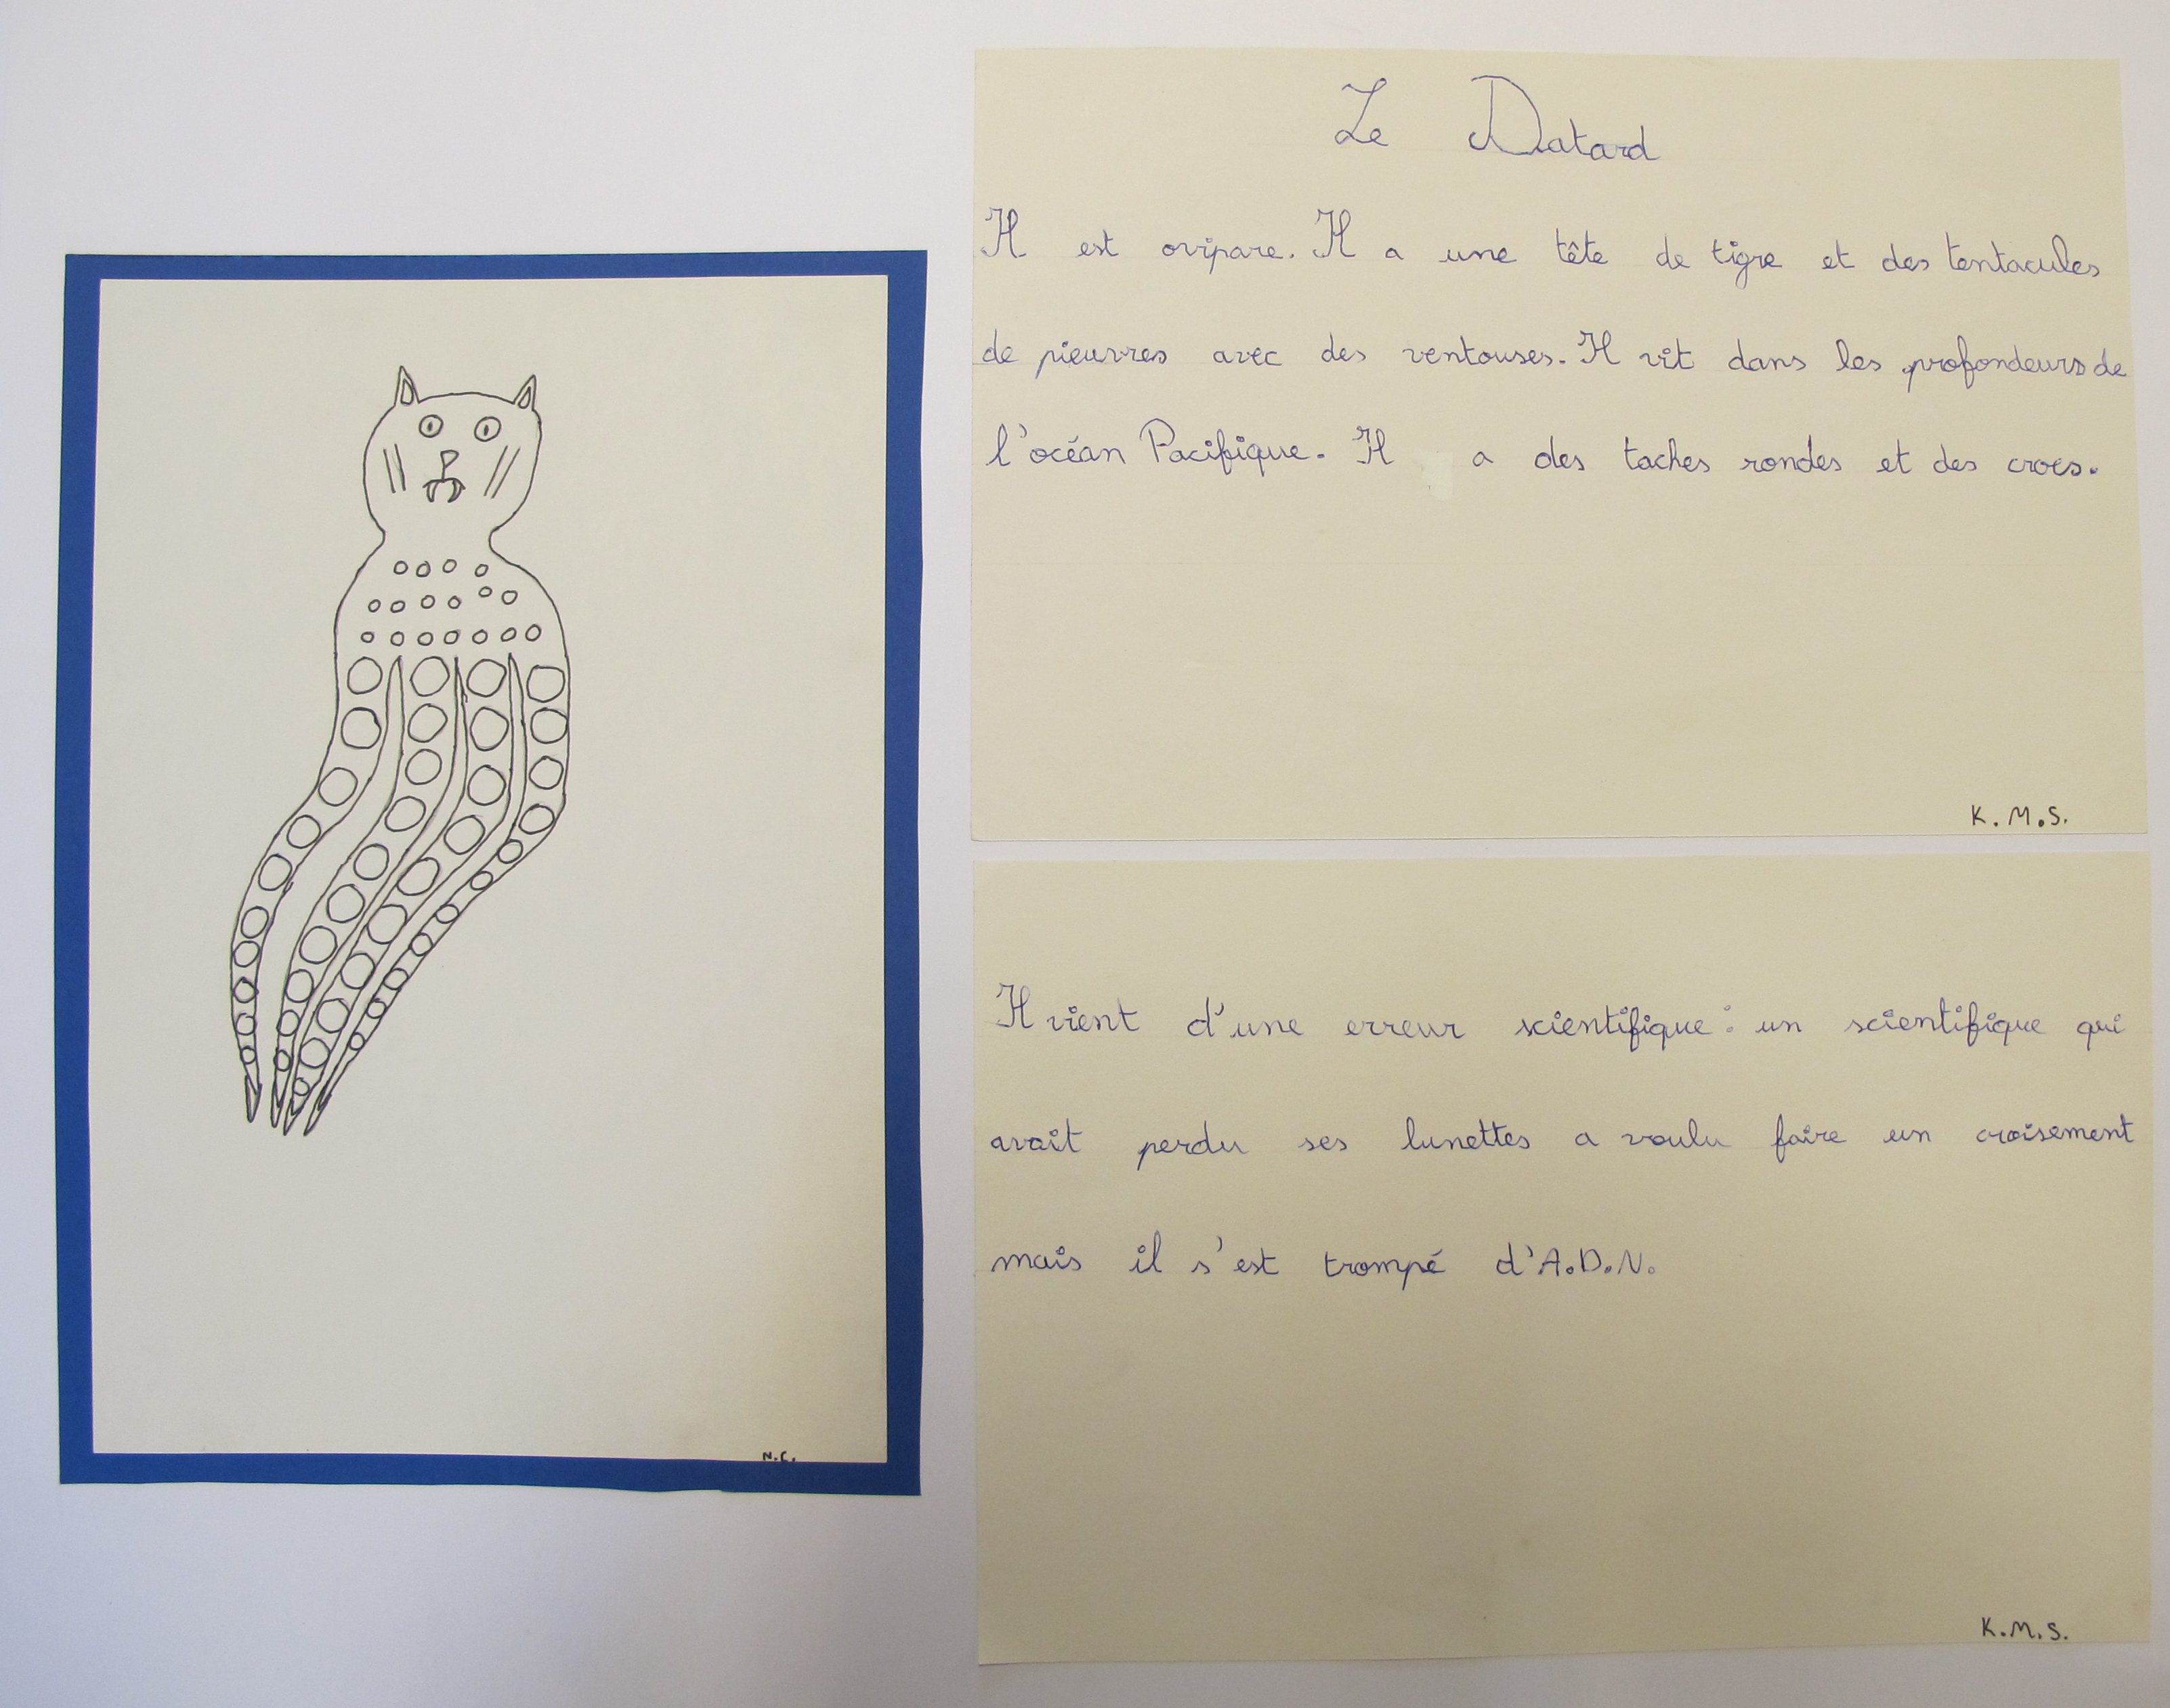 Le Datard
Il est ovipare. Il a une tête de tigre et des tentacules
de pieuvres avec des ventouses. Il vit dans les profondeurs de
l'océan Pacifique. Il a des taches rondes et des crocs.
K.M.S.
Il vient d'une erreur scientifique : un scientifique qui
avait perdu ses lunettes a voulu faire un croisement
mais il s'est trompé d'A.D.N.
K.M.S.
N.C.